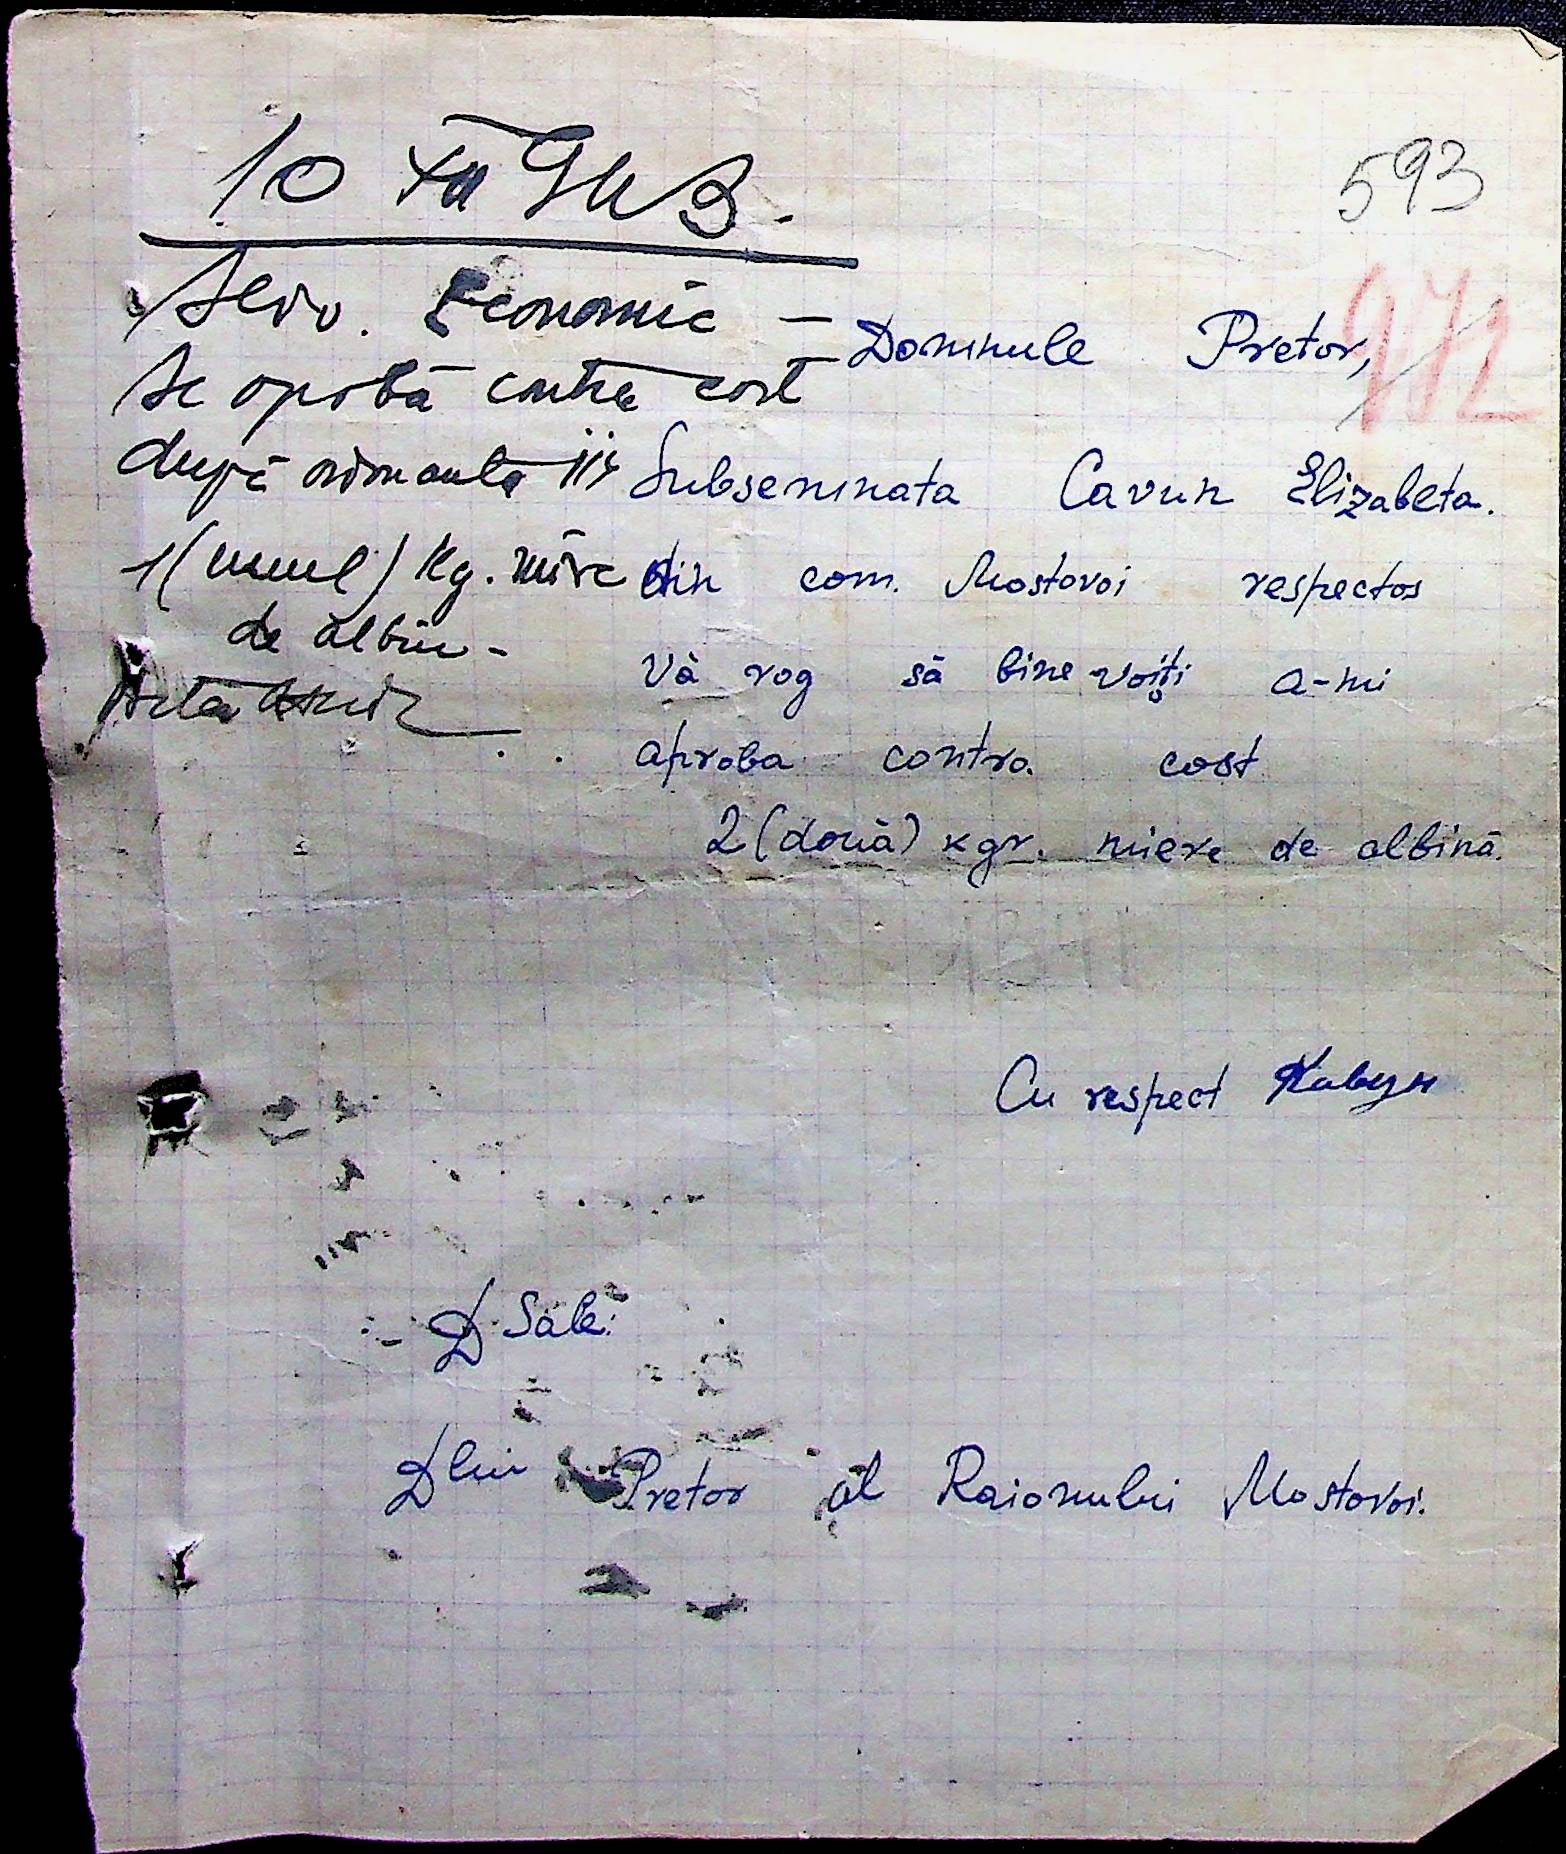 593
10 XII 943.
Serv. Economic –
Se aprobă contra cost
după
1 (unul) Kg. miere
de albine -
972
Domnule Pretor,
Subsemnata Cavun Elizabeta.
din com. Mostovoi respectos
Vă rog să bine-voiți a-mi
aproba contra cost
2 (două) kgr. miere de albină.
Cu respect
D Sale:
Dlui Pretor al Raionului Mostovoi.